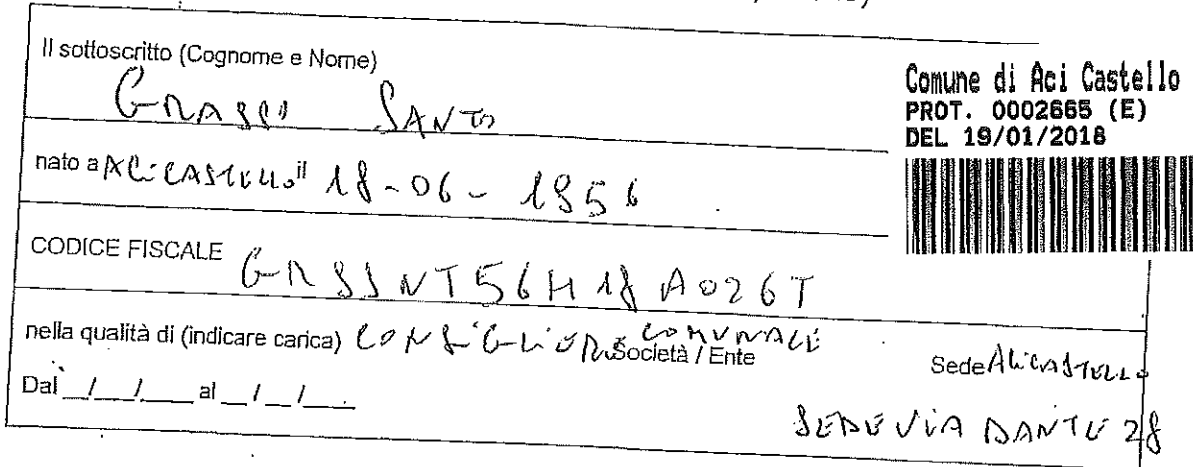 Il sottoscritto (Cognome e Nome)
GRASSO SANTO
Comune di Aci Castello
PROT. 0002665 (E)
DEL 19/01/2018
nato a ACICASTELLO il 18-06-1956
CODICE FISCALE GRSSNT56H18A026T
nella qualità di (indicare carica) CONSIGLIERE COMUNALE Società / Ente Sede ACICASTELLO
Dal __/__/____ al __/__/____.
SEDE VIA DANTE 28